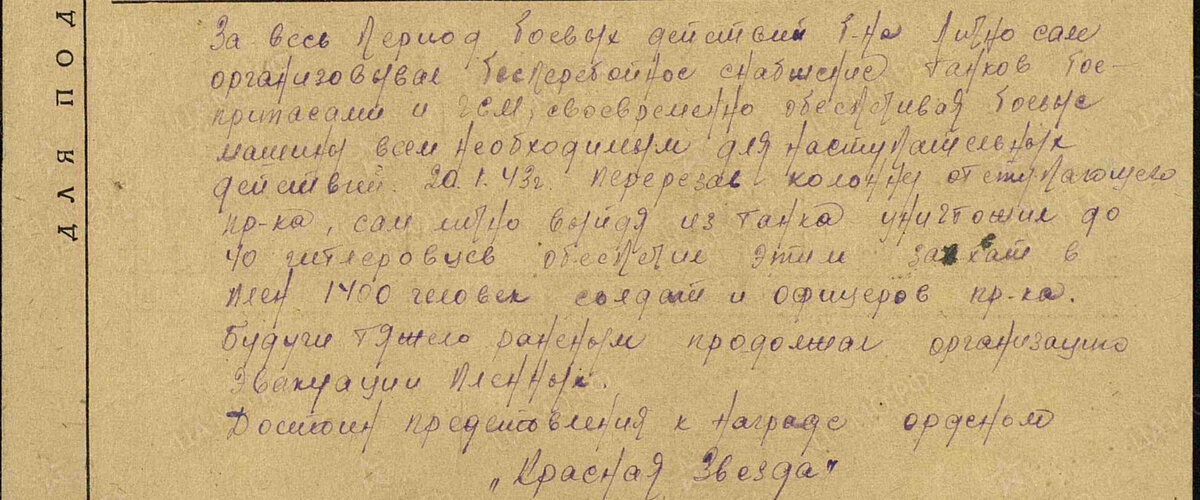 За весь период боевых действий б-на лично сам
организовывал бесперебойное снабжение танков бое-
припасами и ГСМ, своевременно обеспечивая боевые
машины всем необходимым для наступательных
действий. 20.1.43г. перерезав колонну отступающего
пр-ка, сам лично выйдя из танка уничтожил до
40 гитлеровцев обеспечив этим захват в
плен 1400 человек солдат и офицеров пр-ка.
Будучи тяжело раненым продолжал организацию
эвакуации пленных.
Достоин представления к награде орденом
"Красная Звезда"
ДЛЯ ПОД